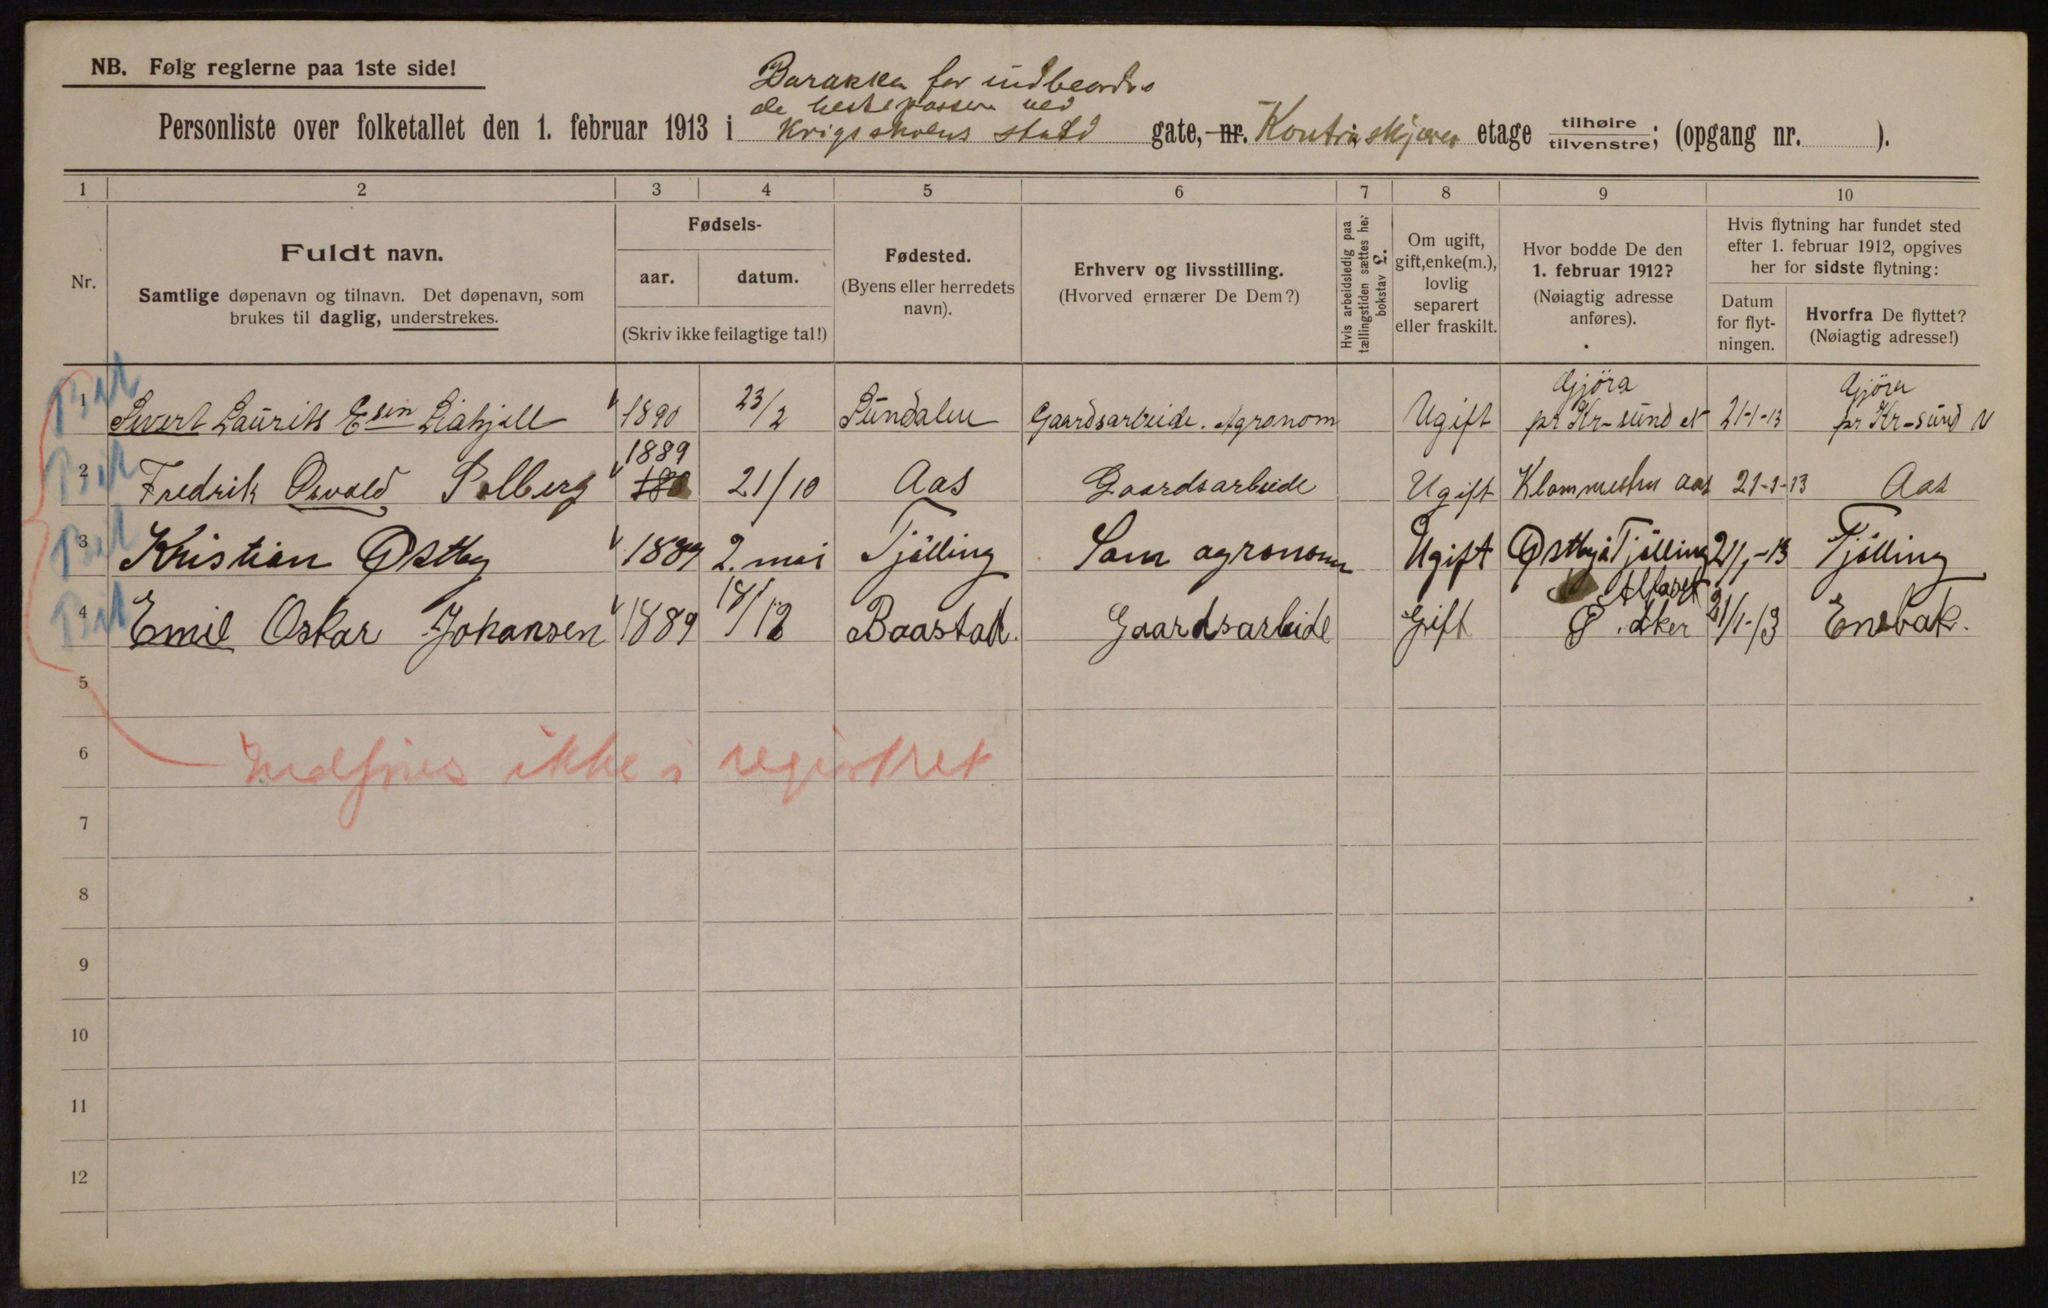 NB. Følg reglerne paa 1ste side!
Barakka for indbeordre
de hestepassere ved
Personliste over folketallet den 1. februar 1913 i Krigsskolens stald gate, nr. Kontraskjæret etage tilhøire / tilvenstre; (opgang nr. ).
1 2 3 4 5 6 7 8 9 10
Nr.
Fuldt navn.
Samtlige døpenavn og tilnavn. Det døpenavn, som
brukes til daglig, understrekes.
Fødsels-
aar. datum.
(Skriv ikke feilagtige tal!)
Fødested.
(Byens eller herredets
navn).
Erhverv og livsstilling.
(Hvorved ernærer De Dem?)
Hvis arbeidsledig paa
tællingstiden sættes her
bokstav L.
Om ugift,
gift, enke(m.),
lovlig
separert
eller fraskilt.
Hvor bodde De den
1. februar 1912?
(Nøiagtig adresse
anføres).
Hvis flytning har fundet sted
efter 1. februar 1912, opgives
her for sidste flytning:
Datum
for flyt-
ningen.
Hvorfra De flyttet?
(Nøiagtig adresse!)
Gjöra Gjöra
1 Sivert Laurits Esen Liahjell 1890 23/2 Sundalen Gaardsarbeide. Agronom Ugift pr Kr-sund N 21-1-13 pr Kr-sund N
1889
2 Fredrik Osvald Solberg 188 21/10 Aas Gaardsarbeide Ugift aas 21-1-13 Aas
3 Kristian Østby 1889 2. mai Tjölling Som agronom Ugift Østby i Tjölling 21/1-13 Tjölling
4 Emil Oskar Johansen 1889 18/12 Baastad. Gaardsarbeide Gift Alfaset Ø. Aker 21/1-13 Enebak.
5
6
Indføres ikke i registret
7
8
9
10
11
12